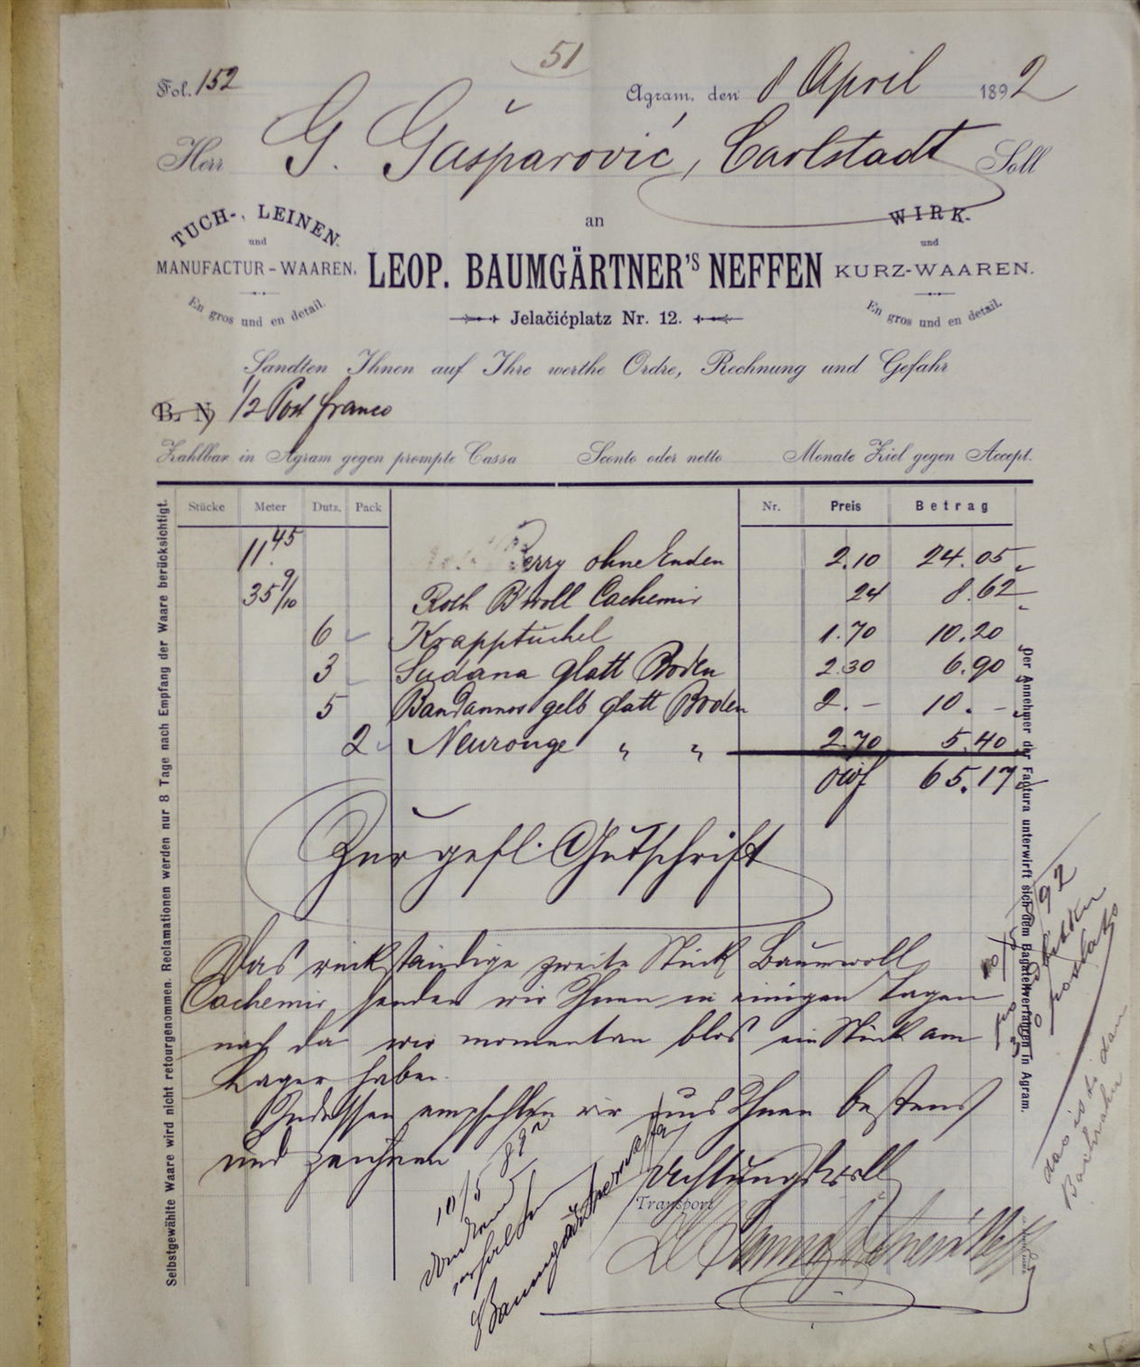 51
Fol. 152
Agram, den 8 April 1892
Herr G. Gašparović, Carlstadt Soll
an
TUCH-, LEINEN-
und
MANUFACTUR-WAAREN.
En gros und en detail.
LEOP. BAUMGÄRTNER'S NEFFEN
Jelačićplatz Nr. 12.
WIRK-
und
KURZ-WAAREN.
En gros und en detail.
Sandten Ihnen auf Ihre werthe Ordre, Rechnung und Gefahr
B. N. 1/2 Post franco
Zahlbar in Agram gegen prompte Cassa Sconto oder netto Monate Ziel gegen Accept.
Stücke Meter Dutz. Pack Nr. Preis Betrag
11.45 Berry ohne Enden 2.10 24.05
35 9/10 Roth B'woll Cachemir 24 8.62
6 Krapptüchel 1.70 10.20
3 Sudana glatt Boden 2.30 6.90
5 Bandannos gelb glatt Boden 2.- 10.-
2 Neurouge " " 2.70 5.40
öwf 65.17
Zur gefl. Gutschrift
Das rückständige zweite Stück Baumwoll
Cachemir senden wir Ihnen in einigen Tagen
nach da wir momentan blos ein Stück am
Lager haben.
Indessen empfehlen wir uns Ihnen bestens
und zeichnen
Achtungsvoll
Transport
10/5 892
Baumgärtner
Selbstgewählte Waare wird nicht retourgenommen. Reclamationen werden nur 8 Tage nach Empfang der Waare berücksichtigt.
Der Annehmer der Factura unterwirft sich dem Bagatellverfahren in Agram.